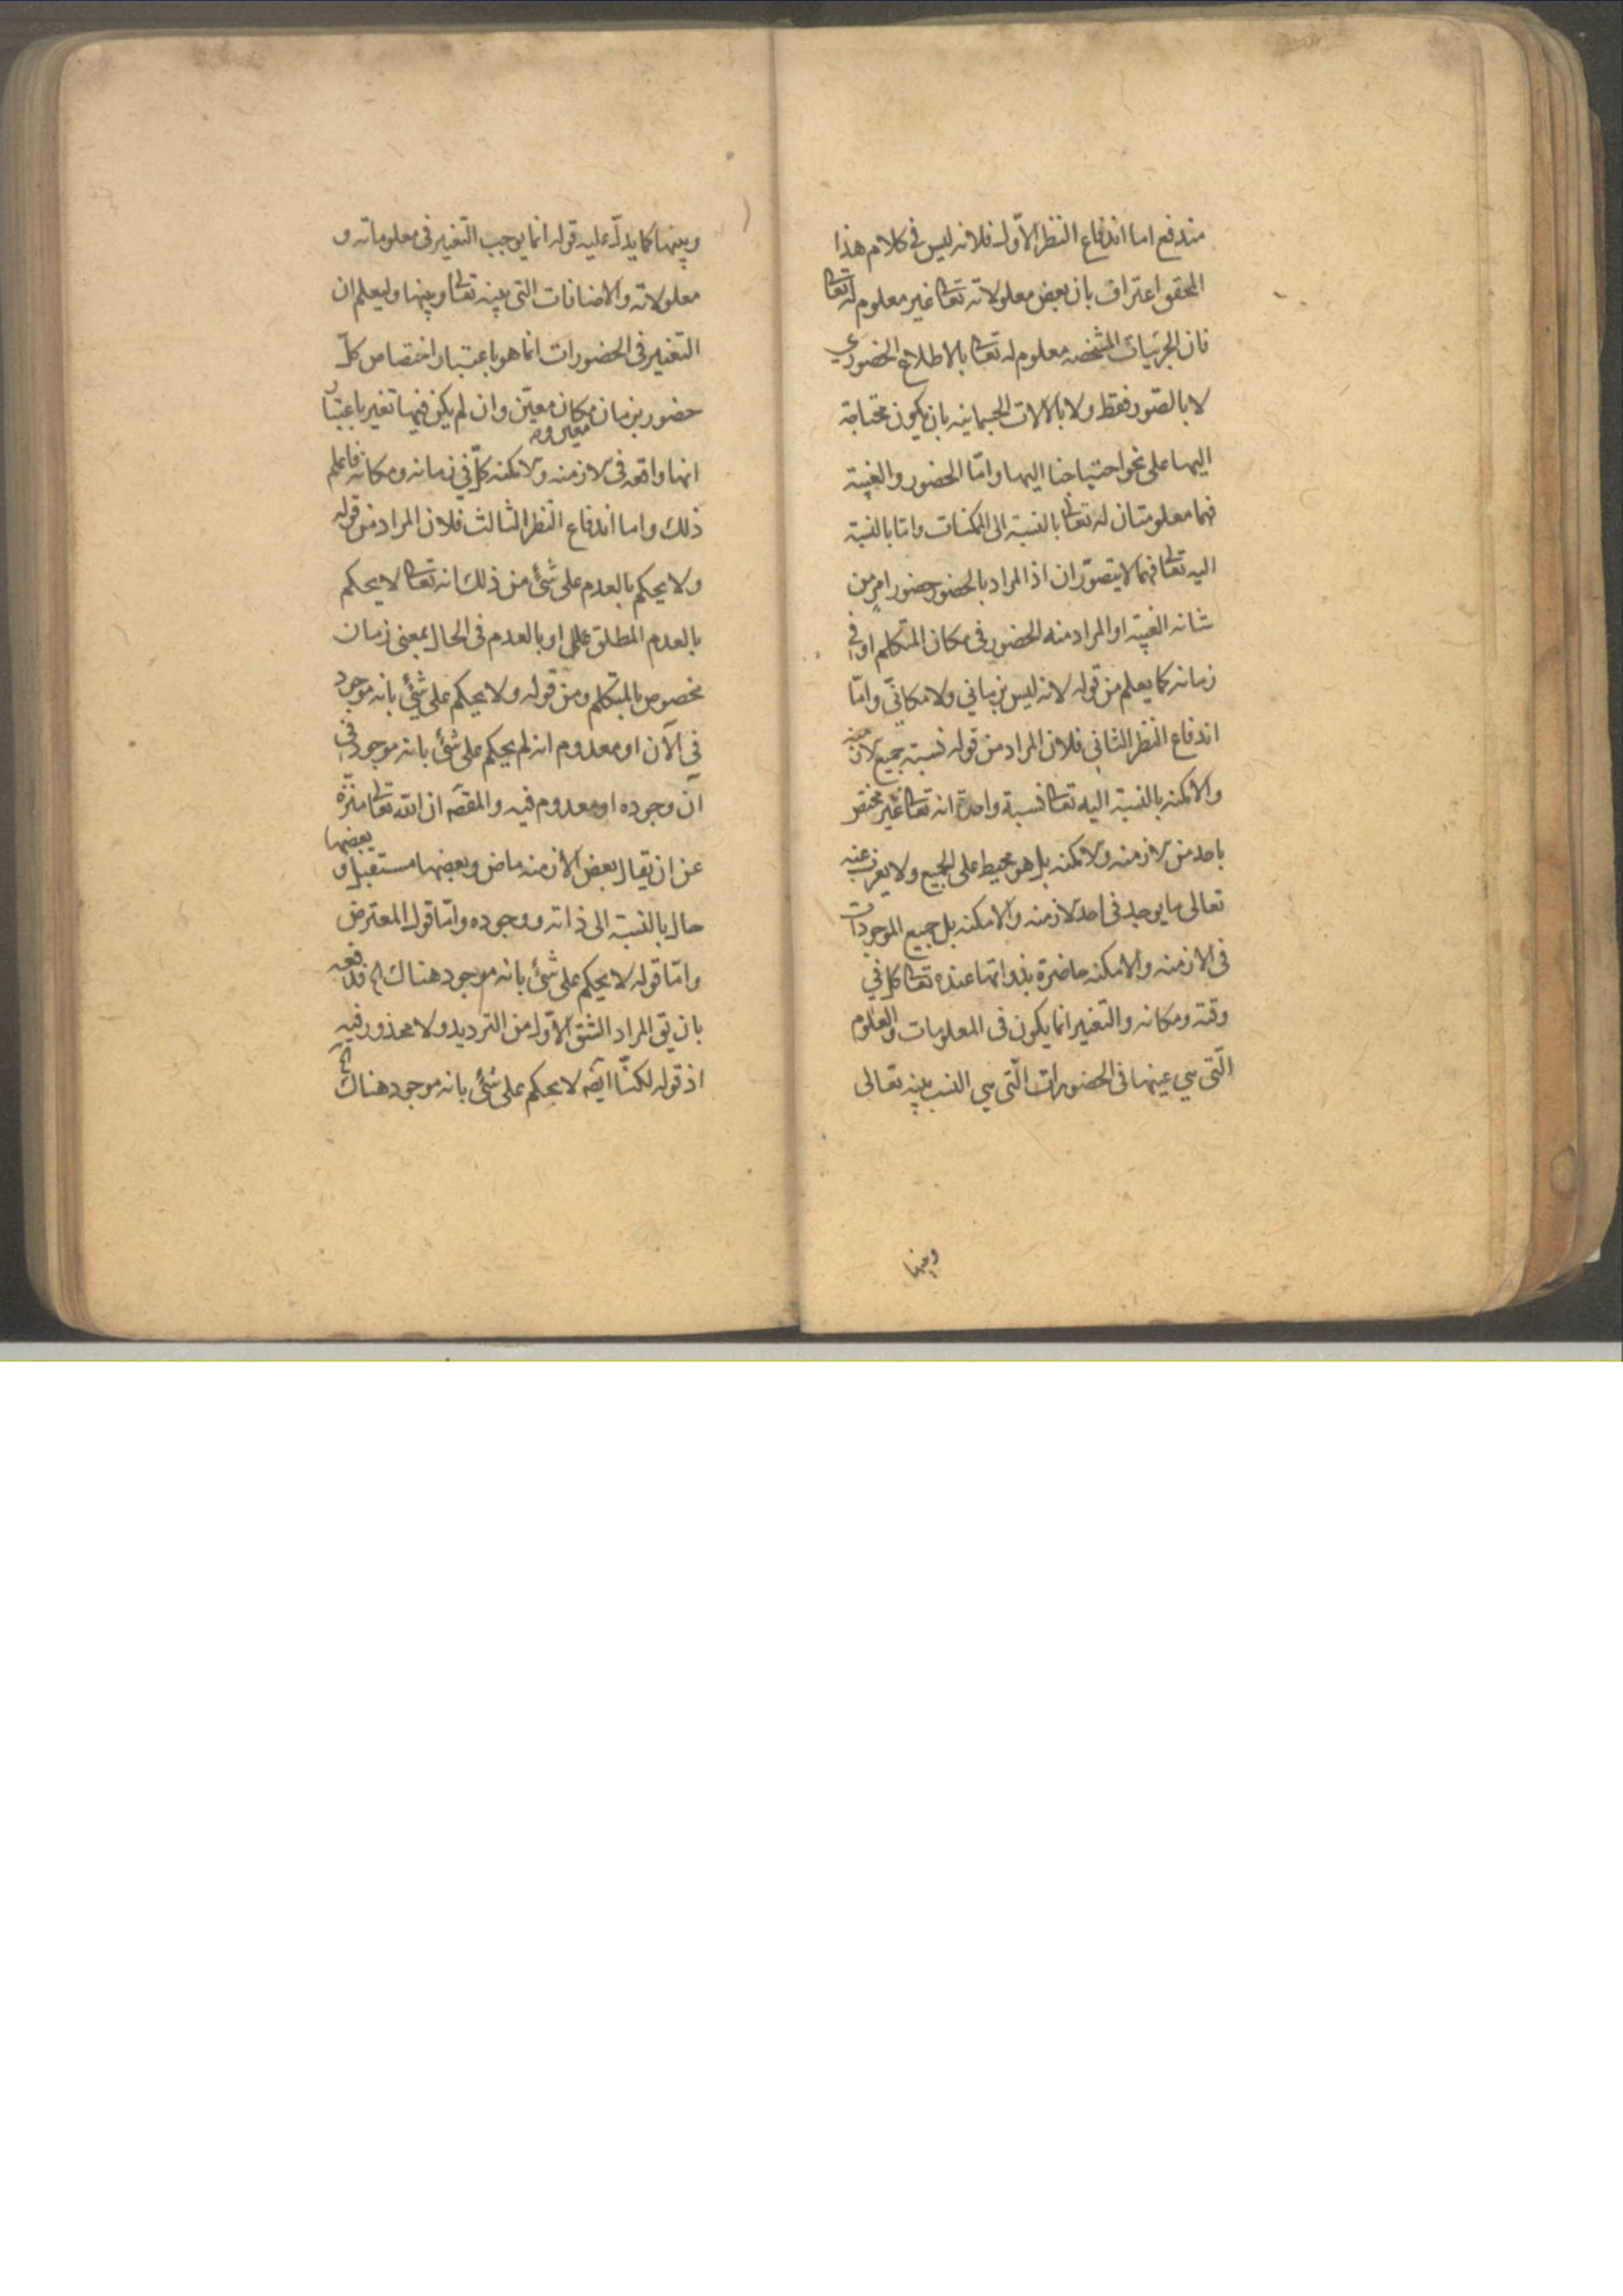 مندفع اما اندفاع النظر الاول فلانه ليس في كلام هذا
المحقق اعتراف بان بعض معلولاته تعا غير معلوم له تعا
فان الجزئيات المشخصه معلوم له تعا بالاطلاع الحضوري
لا بالصور فقط ولا بالالات الجسمانيه بان يكون محتاجة
اليها على نحو احتياجنا اليها وامّا الحضور والغيبة
فهما معلومتان له تعا بالنسبة الى الممكنات وامّا بالنسبة
اليه تعا فهما لا يتصوّران اذ المراد بالحضور حضور امرٍ من
شانه الغيبة او المراد منه الحضور في مكان المتكلم او في
زمانه كما يعلم من قوله لانه ليس بزماني ولا مكانيّ وامّا
اندفاع النظر الثاني فلان المراد من قوله نسبة جميع الازمنه
والامكنه بالنسبة اليه تعا نسبة واحدة انه تعا غير مختص
باحد من الازمنه والامكنه بل هو محيط على الجميع ولا يعزب عنه
تعالى ما يوجد في احد الازمنه والامكنه بل جميع الموجودات
في الازمنه والامكنه حاضرة بذواتها عنده تعا كل في
وقته ومكانه والتغير انما يكون في المعلومات والعلوم
الّتي هي عينها في الحضورات الّتي هي النسب بينه تعالى
وبينها
وبينها كما يدلّ عليه قوله انما يوجب التغير في معلوماته و
معلولاته والاضافات التي بينه تعا وبينها وليعلم ان
التغير في الحضورات انما هو باعتبار اختصاص كلّ
حضور بزمان معين ومكان معيّن وان لم يكن فيها تغير باعتبار
انها واقعه في الازمنه والامكنه كلّ في زمانه ومكانه فاعلم
ذلك واما اندفاع النظر الثالث فلان المراد من قوله
ولا يحكم بالعدم على شئ من ذلك انه تعا لا يحكم
بالعدم المطلق او بالعدم في الحال بمعنى زمان
مخصوص بالمتكلم ومن قوله ولا يحكم على شئ بانه موجود
في الآن او معدوم انه لم يحكم على شئ بانه موجود في
آن وجوده او معدوم فيه والمقصّه ان الله تعا منزّه
عن ان يقال بعض الأزمنه ماض وبعضها مستقبل و بعضها
حال بالنسبة الى ذاته ووجوده وامّا قول المعترض
وامّا قوله لا يحكم على شئ بانه موجود هناك الخ فدفعه
بان يق المراد الشق الاوّل من الترديد ولا محذور فيه
اذ قوله لكنّا ايضه لا يحكم على شئ بانه موجود هناك الخ